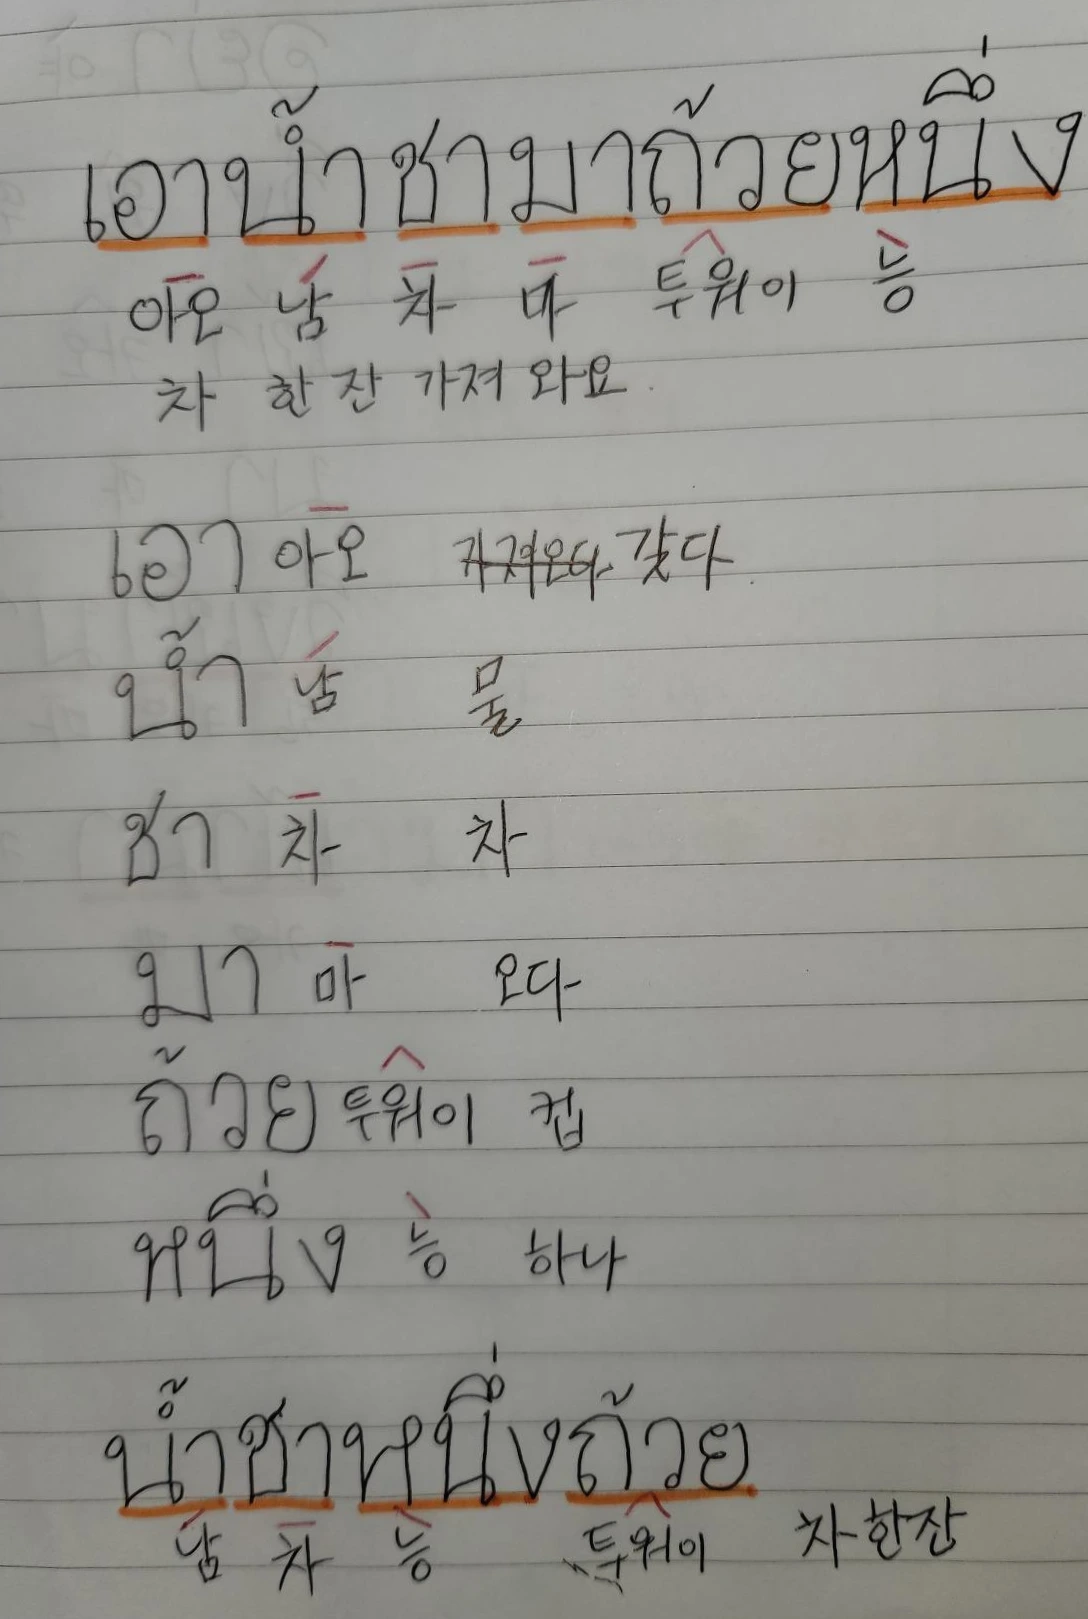 เอาน้ำชามาถ้วยหนึ่ง
아오 남 차 마 투워이 능
차 한 잔 가져 와요.
เอา 아오 가져온다 갖다
น้ำ 남 물
ชา 차 차
มา 마 오다
ถ้วย 투워이 컵
หนึ่ง 능 하나
น้ำชาหนึ่งถ้วย
남 차 능 투워이 차 한 잔